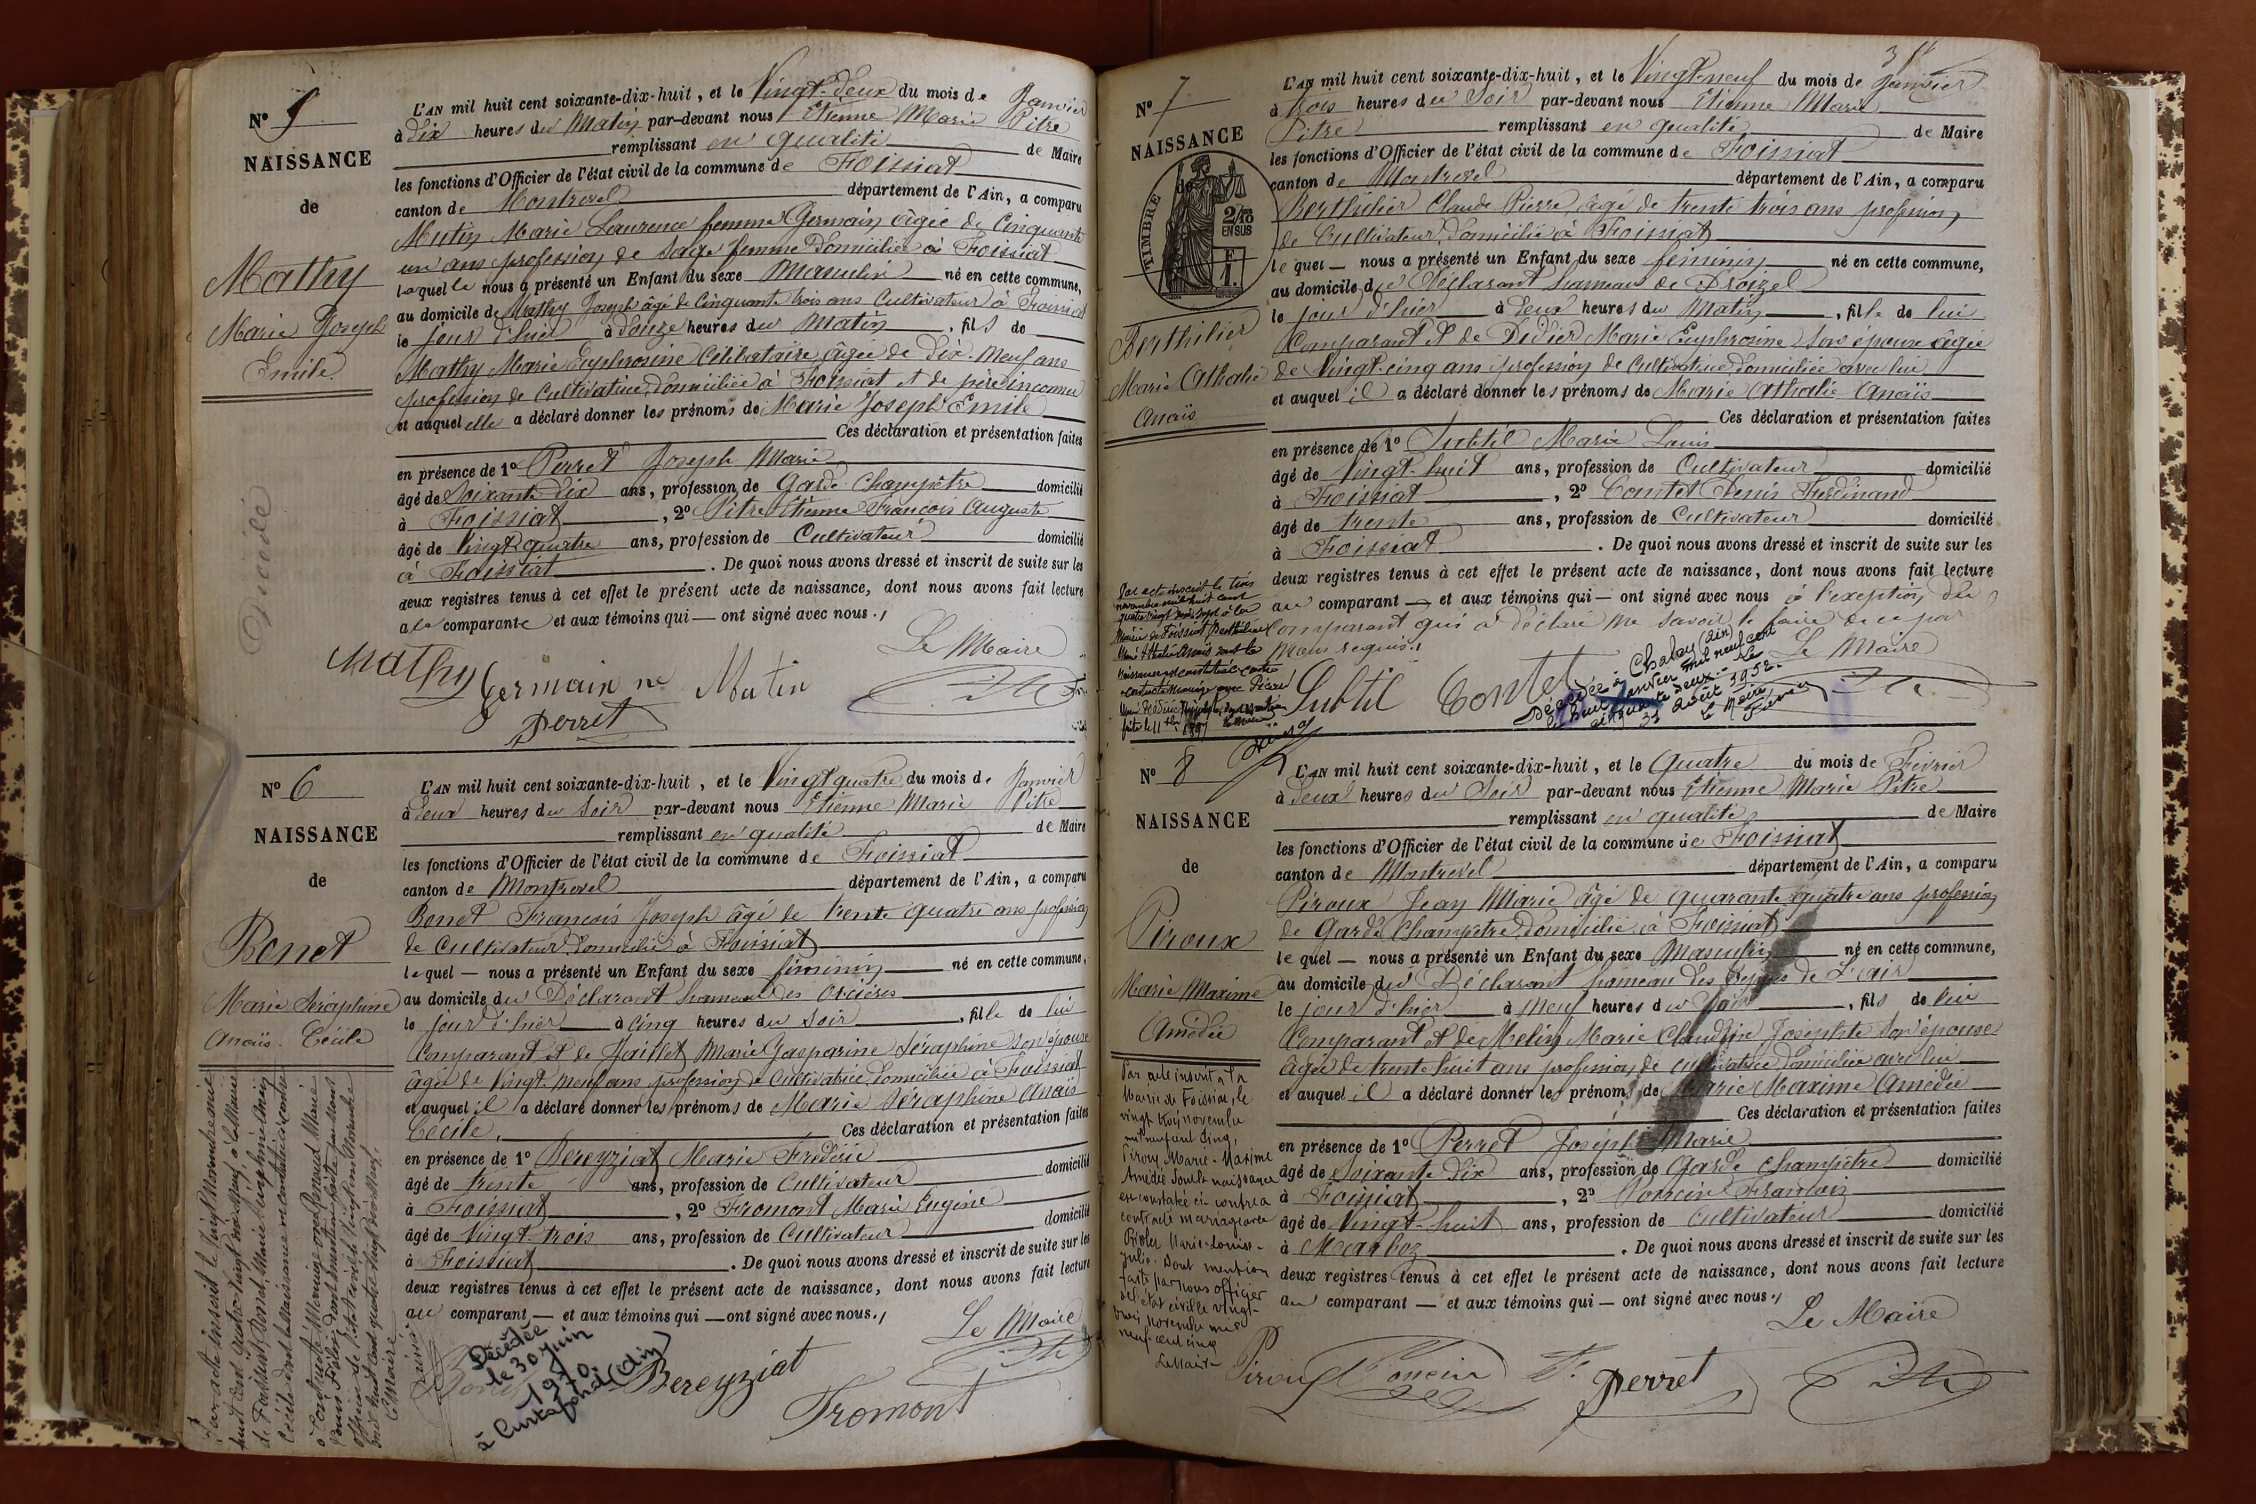 Nº 5
NAISSANCE
de
Mathy
Marie Joseph
Emile
Décédé
L'AN mil huit cent soixante-dix-huit, et le Vingt-deux du mois de Janvier
à dix heures du Matin par-devant nous Etienne Marie Pitre
remplissant en qualité de Maire
les fonctions d'Officier de l'état civil de la commune de Foissiat
canton de Montrevel département de l'Ain, a comparu
Mutin Marie Laurence femme Germain âgée de Cinquante
un ans profession de Sage femme Domiciliée à Foissiat
laquelle nous a présenté un Enfant du sexe Masculin né en cette commune,
au domicile de Mathy Joseph âgé de Cinquante trois ans Cultivateur à Foissiat
le jour d'hier à douze heures du Matin, fils de
Mathy Marie Euphrosine Célibataire âgée de Dix-Neuf ans
profession de Cultivatrice domiciliée à Foissiat et de père inconnu
et auquel elle a déclaré donner les prénoms de Marie Joseph Emile
Ces déclaration et présentation faites
en présence de 1º Perret Joseph Marie
âgé de Soixante Dix ans, profession de Garde Champêtre domicilié
à Foissiat, 2º Pitre Etienne François Auguste
âgé de Vingt quatre ans, profession de Cultivateur domicilié
à Foissiat. De quoi nous avons dressé et inscrit de suite sur les
deux registres tenus à cet effet le présent acte de naissance, dont nous avons fait lecture
a la comparante et aux témoins qui — ont signé avec nous./
Le Maire
Mathy Germain né Mutin
Perret
Nº 6
NAISSANCE
de
Bonet
Marie Séraphine
Anaïs. Cécile
L'AN mil huit cent soixante-dix-huit, et le Vingt quatre du mois de Janvier
à deux heures du Soir par-devant nous Etienne Marie Pitre
remplissant en qualité de Maire
les fonctions d'Officier de l'état civil de la commune de Foissiat
canton de Montrevel département de l'Ain, a comparu
Bonet François Joseph âgé de trente quatre ans profession
de Cultivateur Domicilié à Foissiat
lequel — nous a présenté un Enfant du sexe féminin né en cette commune,
au domicile du Déclarant hameau des Orcières
le jour d'hier à Cinq heures du Soir, fille de lui
Comparant et de Jaillet Marie Gasparine Séraphine Son épouse
âgée de Vingt neuf ans profession de Cultivatrice Domiciliée à Foissiat
et auquel il a déclaré donner les prénoms de Marie Séraphine Anaïs
Cécile. Ces déclaration et présentation faites
en présence de 1º Bereyziat Marie Fréderic
âgé de trente ans, profession de Cultivateur domicilié
à Foissiat, 2º Fromont Marie Eugène
âgé de Vingt trois ans, profession de Cultivateur domicilié
à Foissiat. De quoi nous avons dressé et inscrit de suite sur les
deux registres tenus à cet effet le présent acte de naissance, dont nous avons fait lecture
au comparant — et aux témoins qui — ont signé avec nous./
Le Maire
Décédée
le 30 juin
1970
à Curtafond (Ain)
Bereyziat
Fromont
Nº 7
NAISSANCE
de
TIMBRE
2/10
EN SUS
Berthilier
Marie Athalie
Anaïs
L'AN mil huit cent soixante-dix-huit, et le Vingt-neuf du mois de Janvier
à trois heures du Soir par-devant nous Etienne Marie
Pitre remplissant en qualité de Maire
les fonctions d'Officier de l'état civil de la commune de Foissiat
canton de Montrevel département de l'Ain, a comparu
Berthilier Claude Pierre, âgé de trente trois ans profession
de Cultivateur, domicilié à Foissiat
lequel — nous a présenté un Enfant du sexe féminin né en cette commune,
au domicile du Déclarant hameau de Droizel
le jour d'hier à deux heures du Matin, fille de lui
Comparant et de Didier Marie Euphrosine Son épouse âgée
de Vingt-cinq ans profession de Cultivatrice domiciliée avec lui
et auquel il a déclaré donner les prénoms de Marie Athalie Anaïs
Ces déclaration et présentation faites
en présence de 1º Subtil Marie Louis
âgé de Vingt-huit ans, profession de Cultivateur domicilié
à Foissiat, 2º Contet Denis Ferdinand
âgé de trente ans, profession de Cultivateur domicilié
à Foissiat. De quoi nous avons dressé et inscrit de suite sur les
deux registres tenus à cet effet le présent acte de naissance, dont nous avons fait lecture
au comparant — et aux témoins qui — ont signé avec nous à l'exception du
Comparant qui a déclaré ne savoir le faire de ce par
Nous requis./
Le Maire
Subtil Contet
Décédée à Chalay (Ain)
le huit Janvier mil neuf cent
cinquante deux. - Le
31 août 1952.
le Maire,
Nº 8
NAISSANCE
de
Piroux
Marie Maxime
Amédée
Par acte inscrit à la
Mairie de Foissiat, le
vingt trois novembre
mil neuf cent cinq,
Piroux Marie-Maxime
Amédée dont la naissance
est constatée ci-contre a
contracté mariage avec
Marie-Louise-
Julie. Dont mention
faite par nous officier
de l'état civil le vingt-
trois novembre mil
neuf-cent cinq
Le Maire
L'AN mil huit cent soixante-dix-huit, et le Quatre du mois de Février
à deux heures du Soir par-devant nous Etienne Marie Pitre
remplissant en qualité de Maire
les fonctions d'Officier de l'état civil de la commune de Foissiat
canton de Montrevel département de l'Ain, a comparu
Piroux Jean Marie âgé de quarante quatre ans profession
de Garde Champêtre, domicilié à Foissiat
lequel — nous a présenté un Enfant du sexe Masculin né en cette commune,
au domicile du Déclarant hameau des
le jour d'hier à neuf heures du Soir, fils de lui
Comparant et de Melin Marie Claudine Josephte Son épouse
âgée de trente huit ans profession de cultivatrice domiciliée avec lui
et auquel il a déclaré donner les prénoms de Marie Maxime Amédée
Ces déclaration et présentation faites
en présence de 1º Perret Joseph Marie
âgé de Soixante Dix ans, profession de Garde Champêtre domicilié
à Foissiat, 2º Poncin François
âgé de Vingt-huit ans, profession de cultivateur domicilié
à Marboz. De quoi nous avons dressé et inscrit de suite sur les
deux registres tenus à cet effet le présent acte de naissance, dont nous avons fait lecture
au comparant — et aux témoins qui — ont signé avec nous./
Le Maire
Piroux Poncin F. Perret